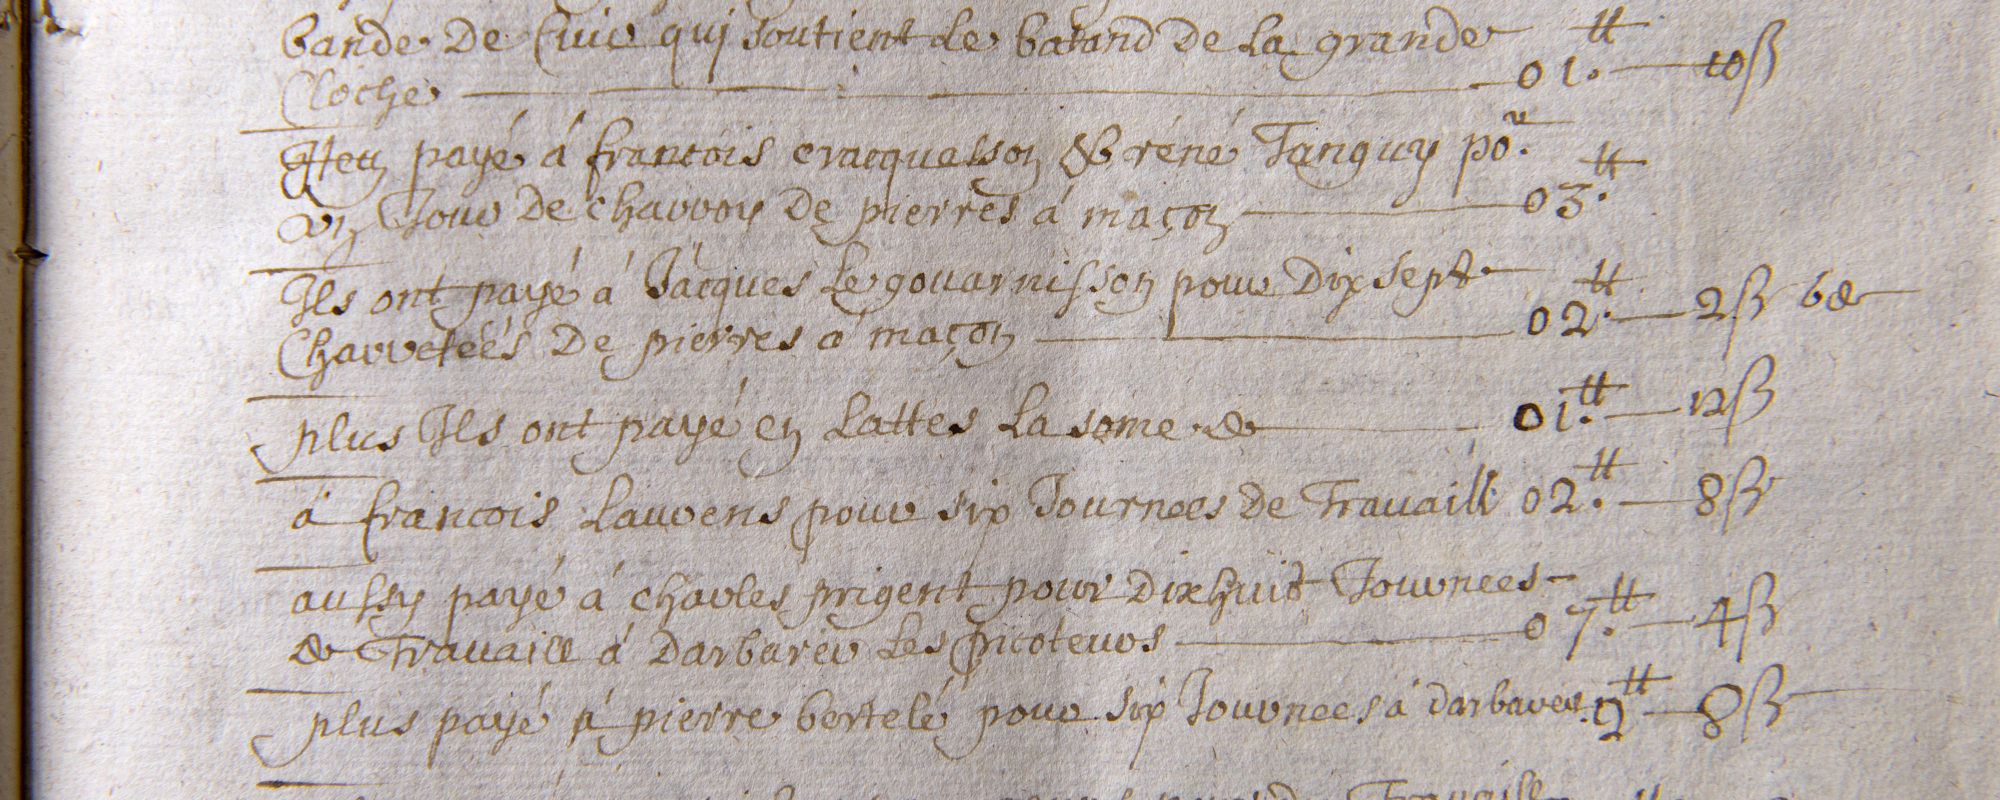 bande de Cuir quj soutient Le batand De La grande
Cloche 01.ᵗᵗ 10ß
Jtem payé á francois cracquesson & réné Tanguy po.ᵘʳ
vn Jour De charroy De pierres á maçon 03.ᵗᵗ
Jls ont payé á Jacques Le gouarnisson pour Dix sept
Charretéés De pierres a maçon 02.ᵗᵗ 2ß 6d
plus Jls ont payé en Lattes La some de 01.ᵗᵗ 12ß
á francois Laurens pour six Journees De Trauaill 02.ᵗᵗ 8ß
aussy payé á charles prigent pour Dixhuit Journees
de Trauaill á Darbarer Les picoteurs 07.ᵗᵗ 4ß
plus payé á pierre bertelé pour six Journees á darbarer 2ᵗᵗ 8ß